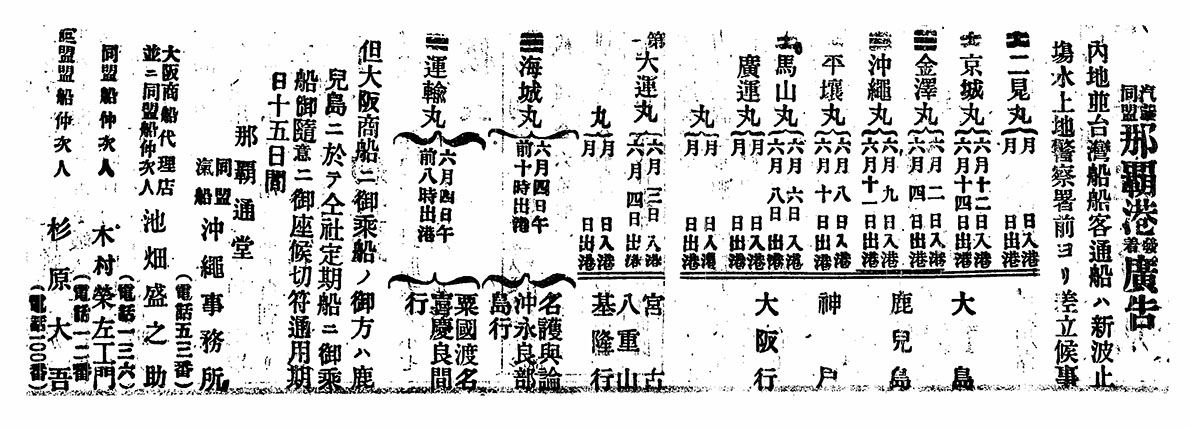 汽船同盟那覇港發着廣告
內地並台灣船船客通船ハ新波止
塲水上地警察署前ヨリ差立候事
二見丸 月 日入港 月 日出港
京城丸 六月十二日入港 六月十四日出港
金澤丸 六月二日入港 六月四日出港
沖繩丸 六月九日入港 六月十一日出港
平壤丸 六月八日入港 六月十日出港
馬山丸 六月六日入港 六月八日出港
廣運丸 月 日入港 月 日出港
丸 月 日入港 月 日出港
大島
鹿兒島
神戶
大阪行
第 大運丸 六月三日入港 六月四日出港
丸 月 日入港 月 日出港
宮古
八重山
基隆行
海城丸 六月四日午前十時出港 名護與論沖永良部島行
運輸丸 六月四日午前八時出港 粟國渡名喜慶良間行
但大阪商船ニ御乘船ノ御方ハ鹿
兒島ニ於テ仝社定期船ニ御乘
船御隨意ニ御座候切符通用期
日十五日間
那覇通堂
同盟汽船 沖繩事務所
(電話五三番)
大阪商船代理店並ニ同盟船仲次人 池畑盛之助
(電話一三六)
同盟船仲次人 木村榮左工門
(電話一二番)
同盟船仲次人 杉原大吾
(電話100番)